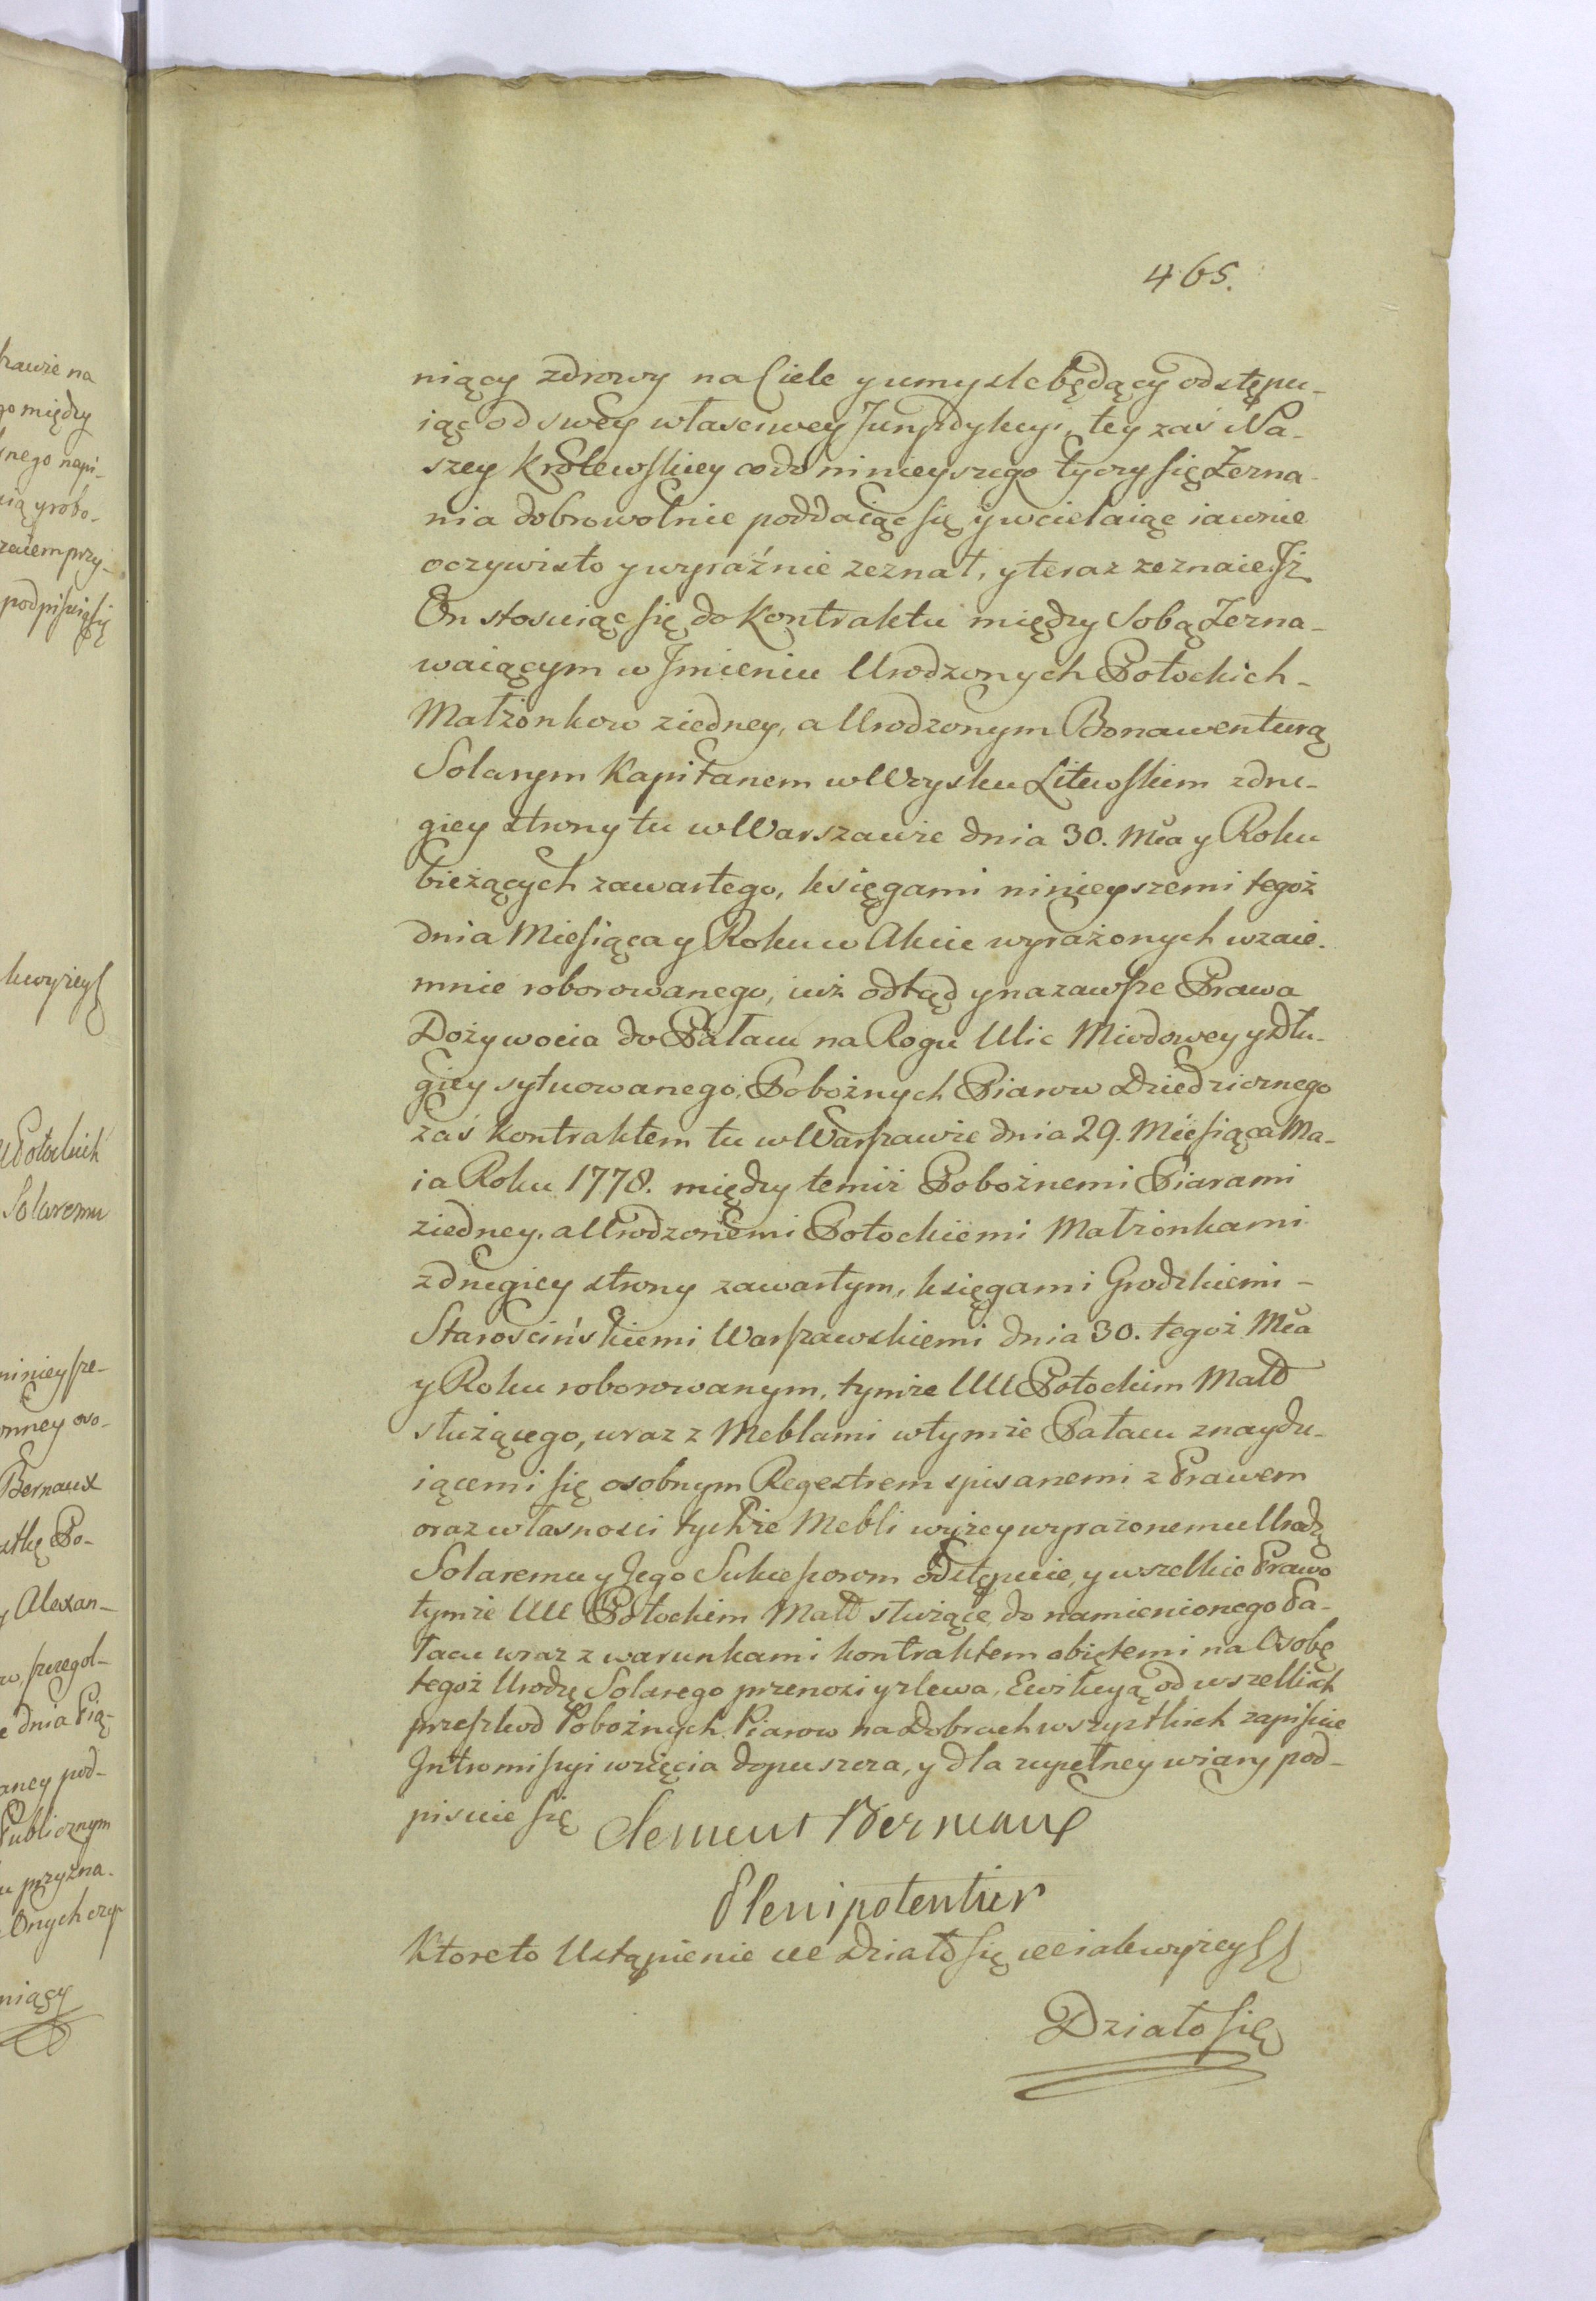 465.
niący zdrowy na Ciele y umyslebędący odstępu-
iąc od swey własciwey Jurysdykcyi, tey zaś Na-
szey Krolewskiey co do ninieyszego tyczy się Zezna-
nia dobrowolnie poddaiąc się y wcielaiąc iawnie
oczywisto y wyraźnie zeznał, y teraz zeznaie Jż
On stosuiąc się do Kontraktu między Sobą Zezna-
waiącym w Jmieniu Urodzonych Potockich-
Małżonkow ziedney, a Urodzonym Bonawenturą
Solarym Kapitanem w Woysku Litewskim zdru-
giey strony tu w Warszawie dnia 30. Mca y Roku
bieżących zawartego, księgami ninieyszemi tegoż
dnia Miesiąca y Roku w Akcie wyrażonych wzaie-
mnie roborowanego, iuż odtąd y nazawsze Prawa
Dożywocia do Pałacu na Rogu Ulic Miodowey y Dłu-
giey sytuowanego, Pobożnych Piarow Dziedzicznego
zaś Kontraktem tu w Warszawie dnia 29. Miesiąca Ma-
ia Roku 1778. między temiż Pobożnemi Piarami
ziedney, a Urodzonemi Potockiemi Małżonkami
zdrugiey strony zawartym, księgami Grodzkiemi-
Starościńskiemi Warszawskiemi dnia 30. tegoż Mca
y Roku roborowanym, tymże UU Potockim Małż
służącego, wraz z Meblami w tymże Pałacu znaydu-
iącemi się osobnym Regestrem spisanemi z Prawem
oraz własnosci tychże Mebli wyżey wyrażonemu Urodz
Solaremu y Jego Sukcessorom odstępuie, y wszelkie Prawo
tymże UU Potockim Małż służące do namienionego Pa-
łacu wraz z warunkami kontraktem obiętemi na Osobę
tegoż Urodz Solarego przenosi y zlewa, Ewikcyą od wszelkich
przeszkod Pobożnych Piarow na Dobrach wszystkich zapisuie
Jntromissyi wzięcia dopuszcza, y dla zupełney wiary pod-
pisuie się Clement Bernaux
Plenipotentier
Ktore to Ustąpienie ut Działo się iak wyżey
Działo się
na
go między
nego napi-
zaiem przy-
podpisuią się
kwyżey
Potockich
Solaremu
ninieysze-
Bernaux
y Alexan-
e dnia Pią-
Publicznym
u przyzna-
Onych
niący